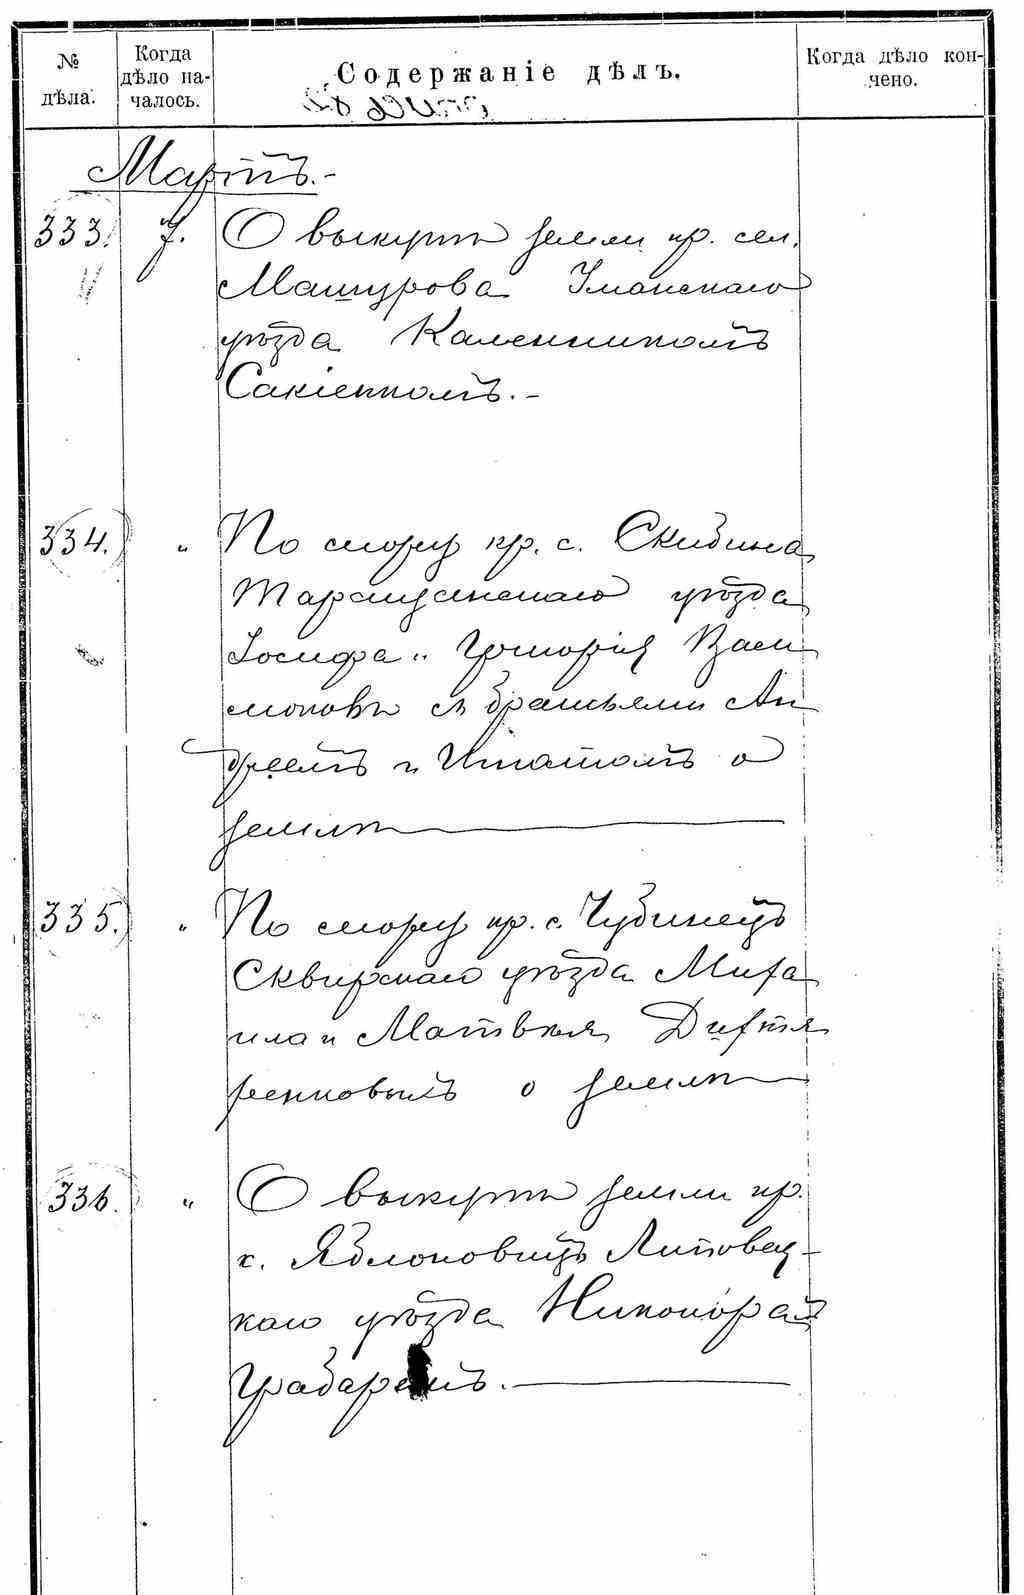 № дѣла.
Когда дѣло на-
чалось.
Содержаніе дѣлъ.
Когда дѣло кон-
чено.
Мартъ.-
333. 7. О выкупѣ земли кр. сел.
Машурова Уманскаго
уѣзда Каленникомъ
Сакіенкомъ.-
334. „ По спору кр. с. Скибина
Таращанскаго уѣзда
Іосифа и Григорія
съ братьями Ан
дреемъ и Игнатомъ о
землѣ
335. „ По спору кр. с. Чубинецъ
Сквирскаго уѣзда Миха
ила и Матвѣя Дихтя
ренковымъ о землѣ
336. „ О выкупѣ земли кр.
с. Яблоновицъ Липовец-
каго уѣзда